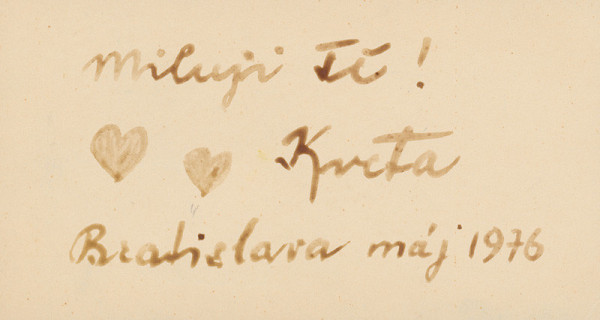 Miluji Tě !
Kveta
Bratislava máj 1976